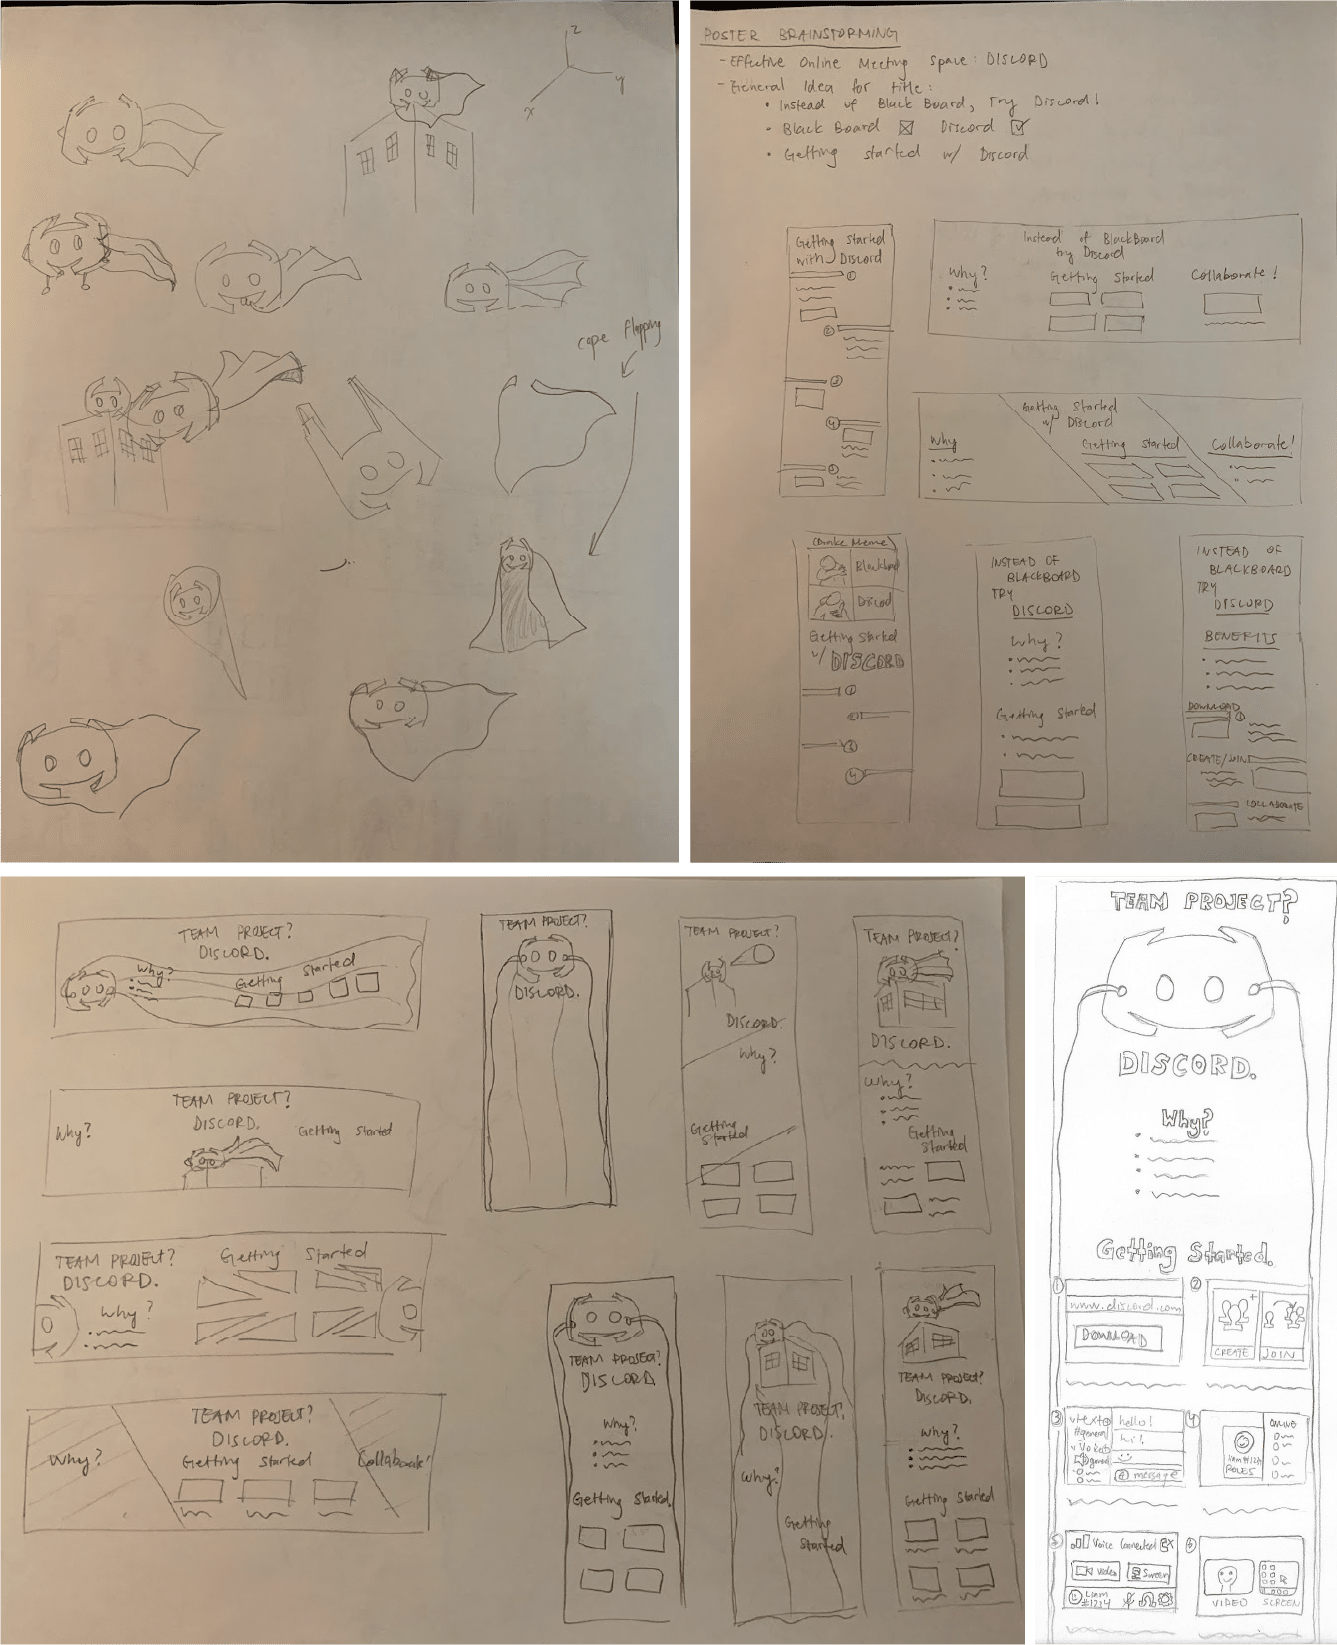 z
y
x
cape flapping
POSTER BRAINSTORMING
- Effective Online Meeting Space: DISCORD
- General Idea for title:
• Instead of Black Board, Try Discord!
• Black Board ☒ Discord ☑
• Getting started w/ Discord
Getting started
with Discord
①
②
③
④
⑤
Instead of BlackBoard
try Discord
Why?
Getting Started
Collaborate!
Getting Started
w/ Discord
Why
Getting Started
Collaborate!
(Drake Meme)
Blackboard
Discord
Getting Started
w/ DISCORD
①
②
③
④
INSTEAD OF
BLACKBOARD
TRY
DISCORD
Why?
Getting Started
INSTEAD OF
BLACKBOARD
TRY
DISCORD
BENEFITS
DOWNLOAD
①
CREATE/JOIN
COLLABORATE
TEAM PROJECT?
DISCORD.
Why?
Getting Started
TEAM PROJECT?
DISCORD.
Why?
Getting Started
TEAM PROJECT?
DISCORD.
Why?
Getting Started
TEAM PROJECT?
DISCORD.
Why?
Getting Started
Collaborate!
TEAM PROJECT?
DISCORD.
TEAM PROJECT?
DISCORD.
Why?
Getting
Started
TEAM PROJECT?
DISCORD.
Why?
Getting
Started
TEAM PROJECT?
DISCORD
Why?
Getting Started.
TEAM PROJECT?
DISCORD.
Why?
Getting
Started
TEAM PROJECT?
DISCORD.
Why?
Getting Started
TEAM PROJECT?
DISCORD.
Why?
Getting Started.
①
www.discord.com
DOWNLOAD
②
CREATE
JOIN
③
#general
hello!
hi!
@ message
④
ROLES
ONLINE
⑤
Voice Connected
Video
Screen
Liam
#1224
⑥
VIDEO
SCREEN